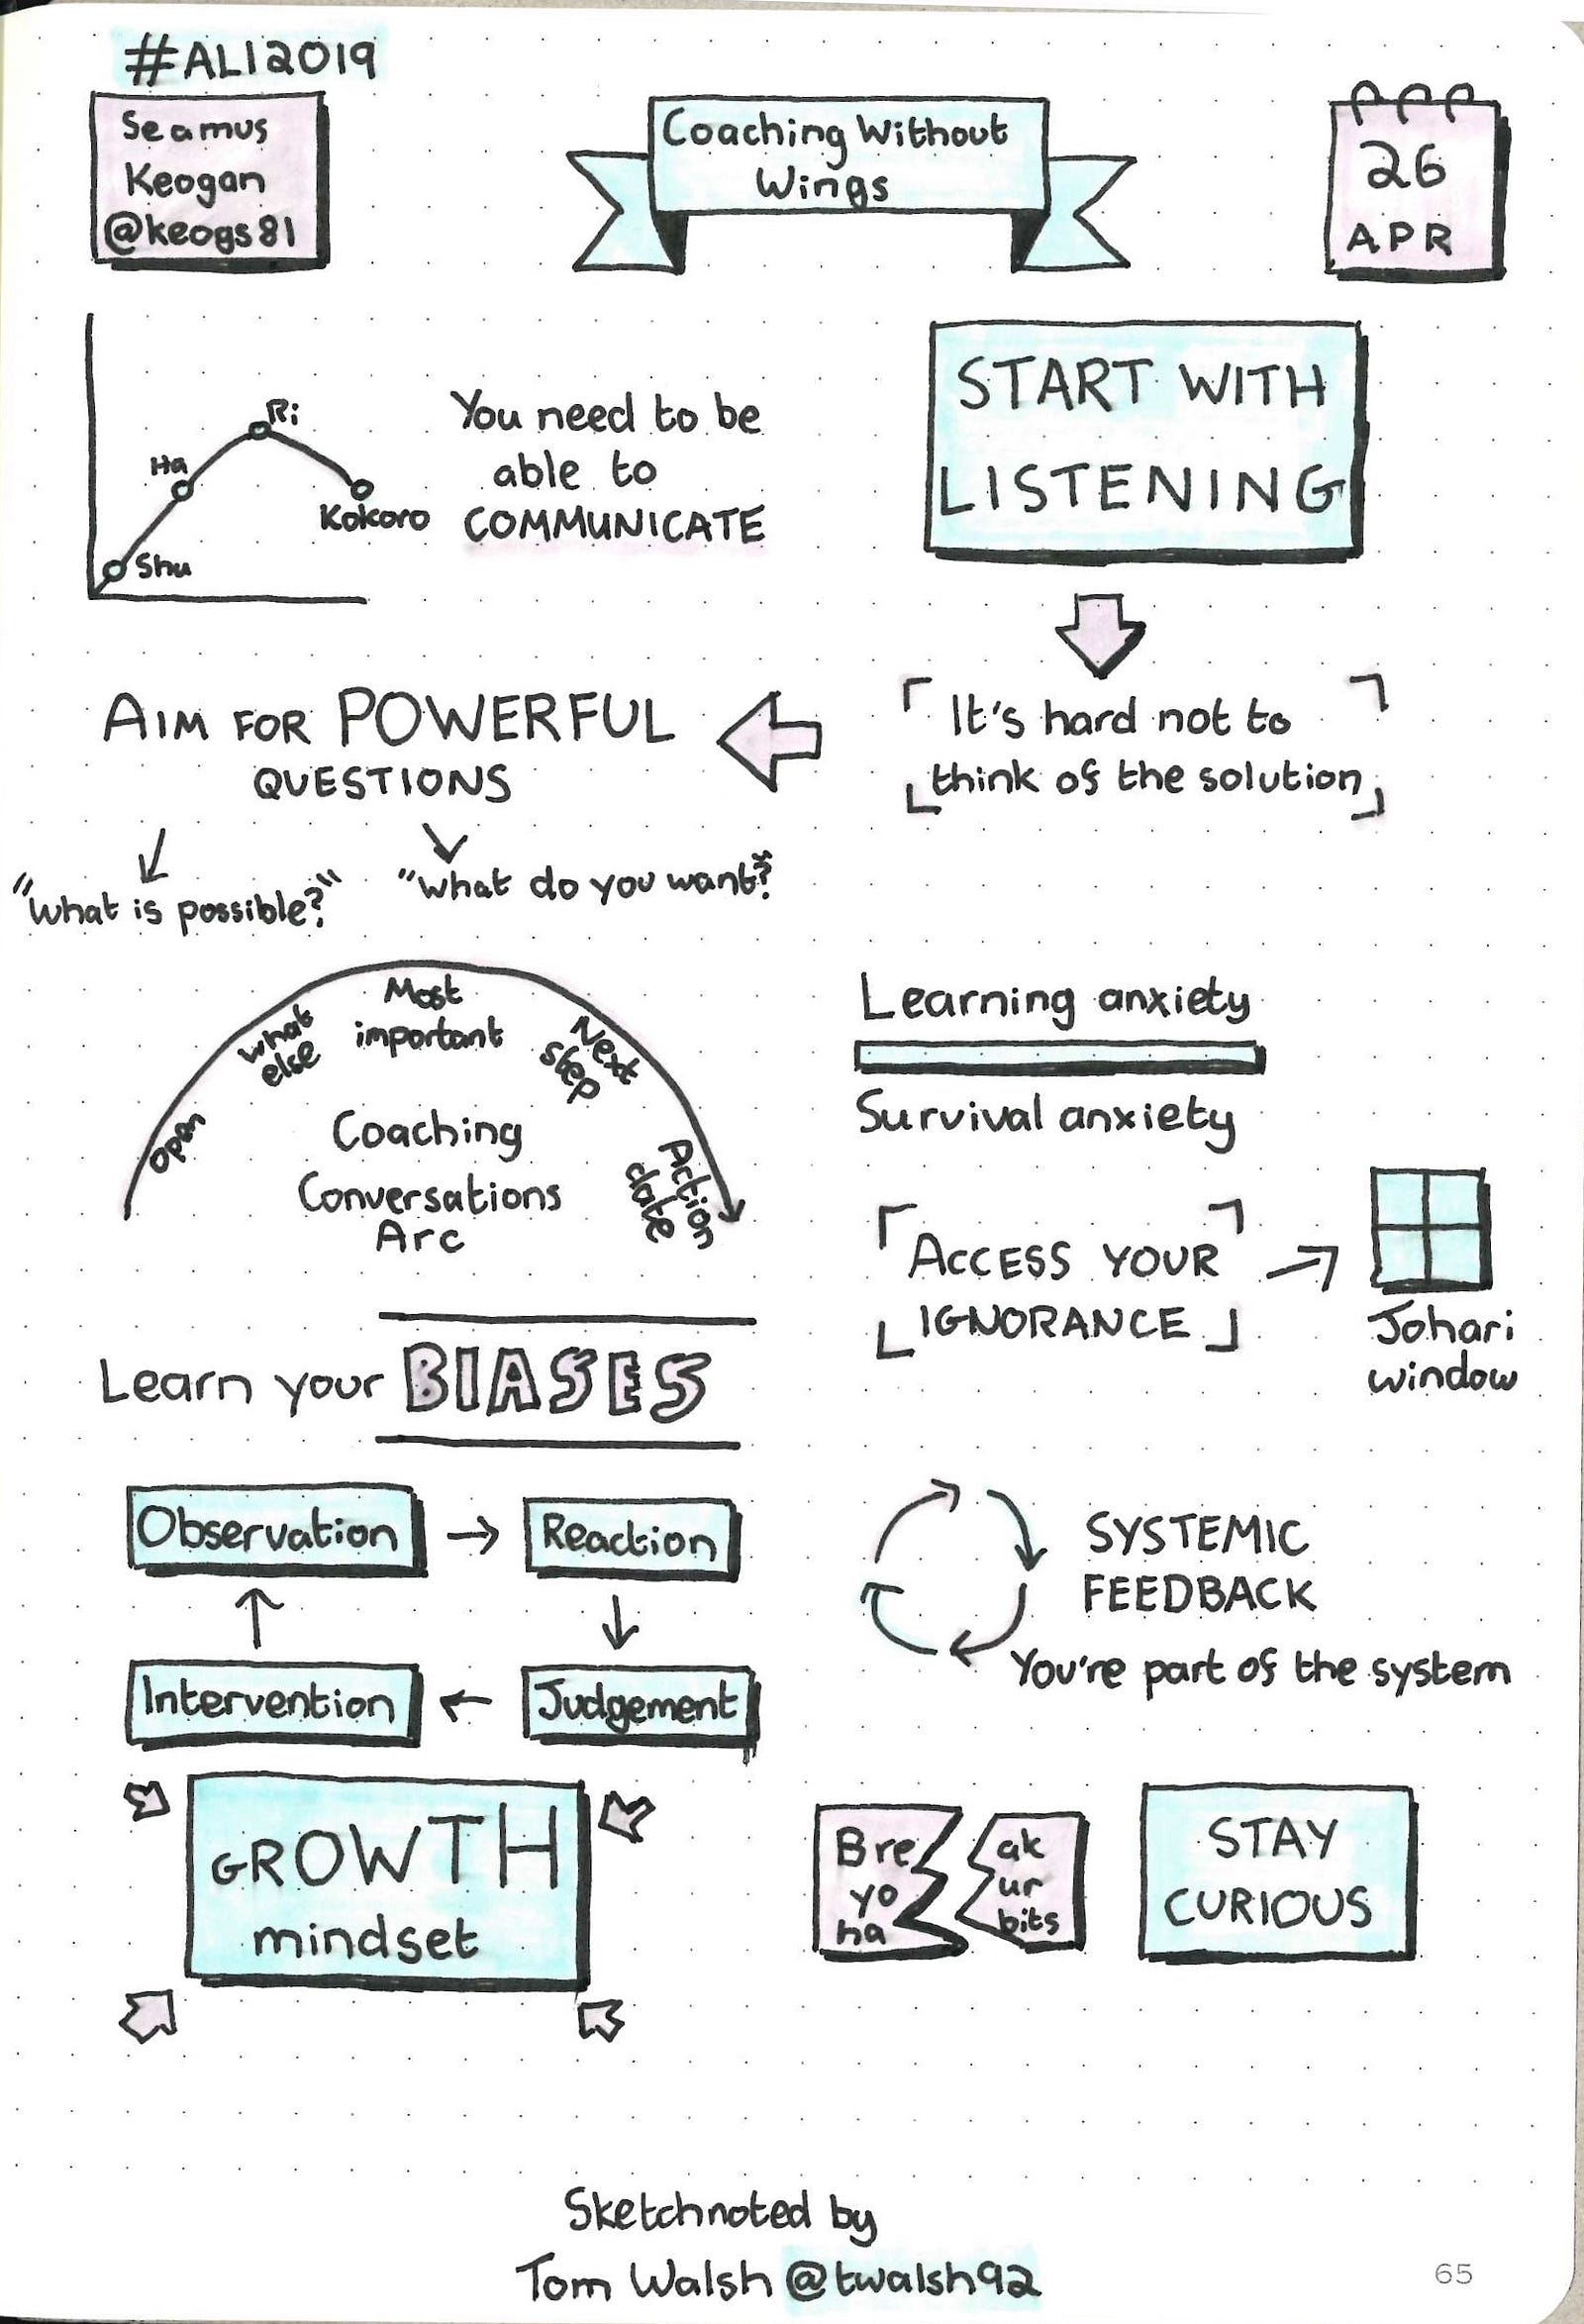 #ALI2019
Seamus
Keogan
@keogs81
Coaching Without
Wings
26
APR
Ri
Ha
Kokoro
Shu
You need to be
able to
COMMUNICATE
START WITH
LISTENING
It's hard not to
think of the solution
AIM FOR POWERFUL
QUESTIONS
"What is possible?"
"What do you want?"
Open
What
else
Most
important
Next
step
Action
date
Coaching
Conversations
Arc
Learning anxiety
Survival anxiety
ACCESS YOUR
IGNORANCE
Johari
window
Learn your BIASES
Observation
Reaction
Judgement
Intervention
SYSTEMIC
FEEDBACK
You're part of the system
GROWTH
mindset
Bre ak
yo ur
ha bits
STAY
CURIOUS
Sketchnoted by
Tom Walsh @twalsh92
65